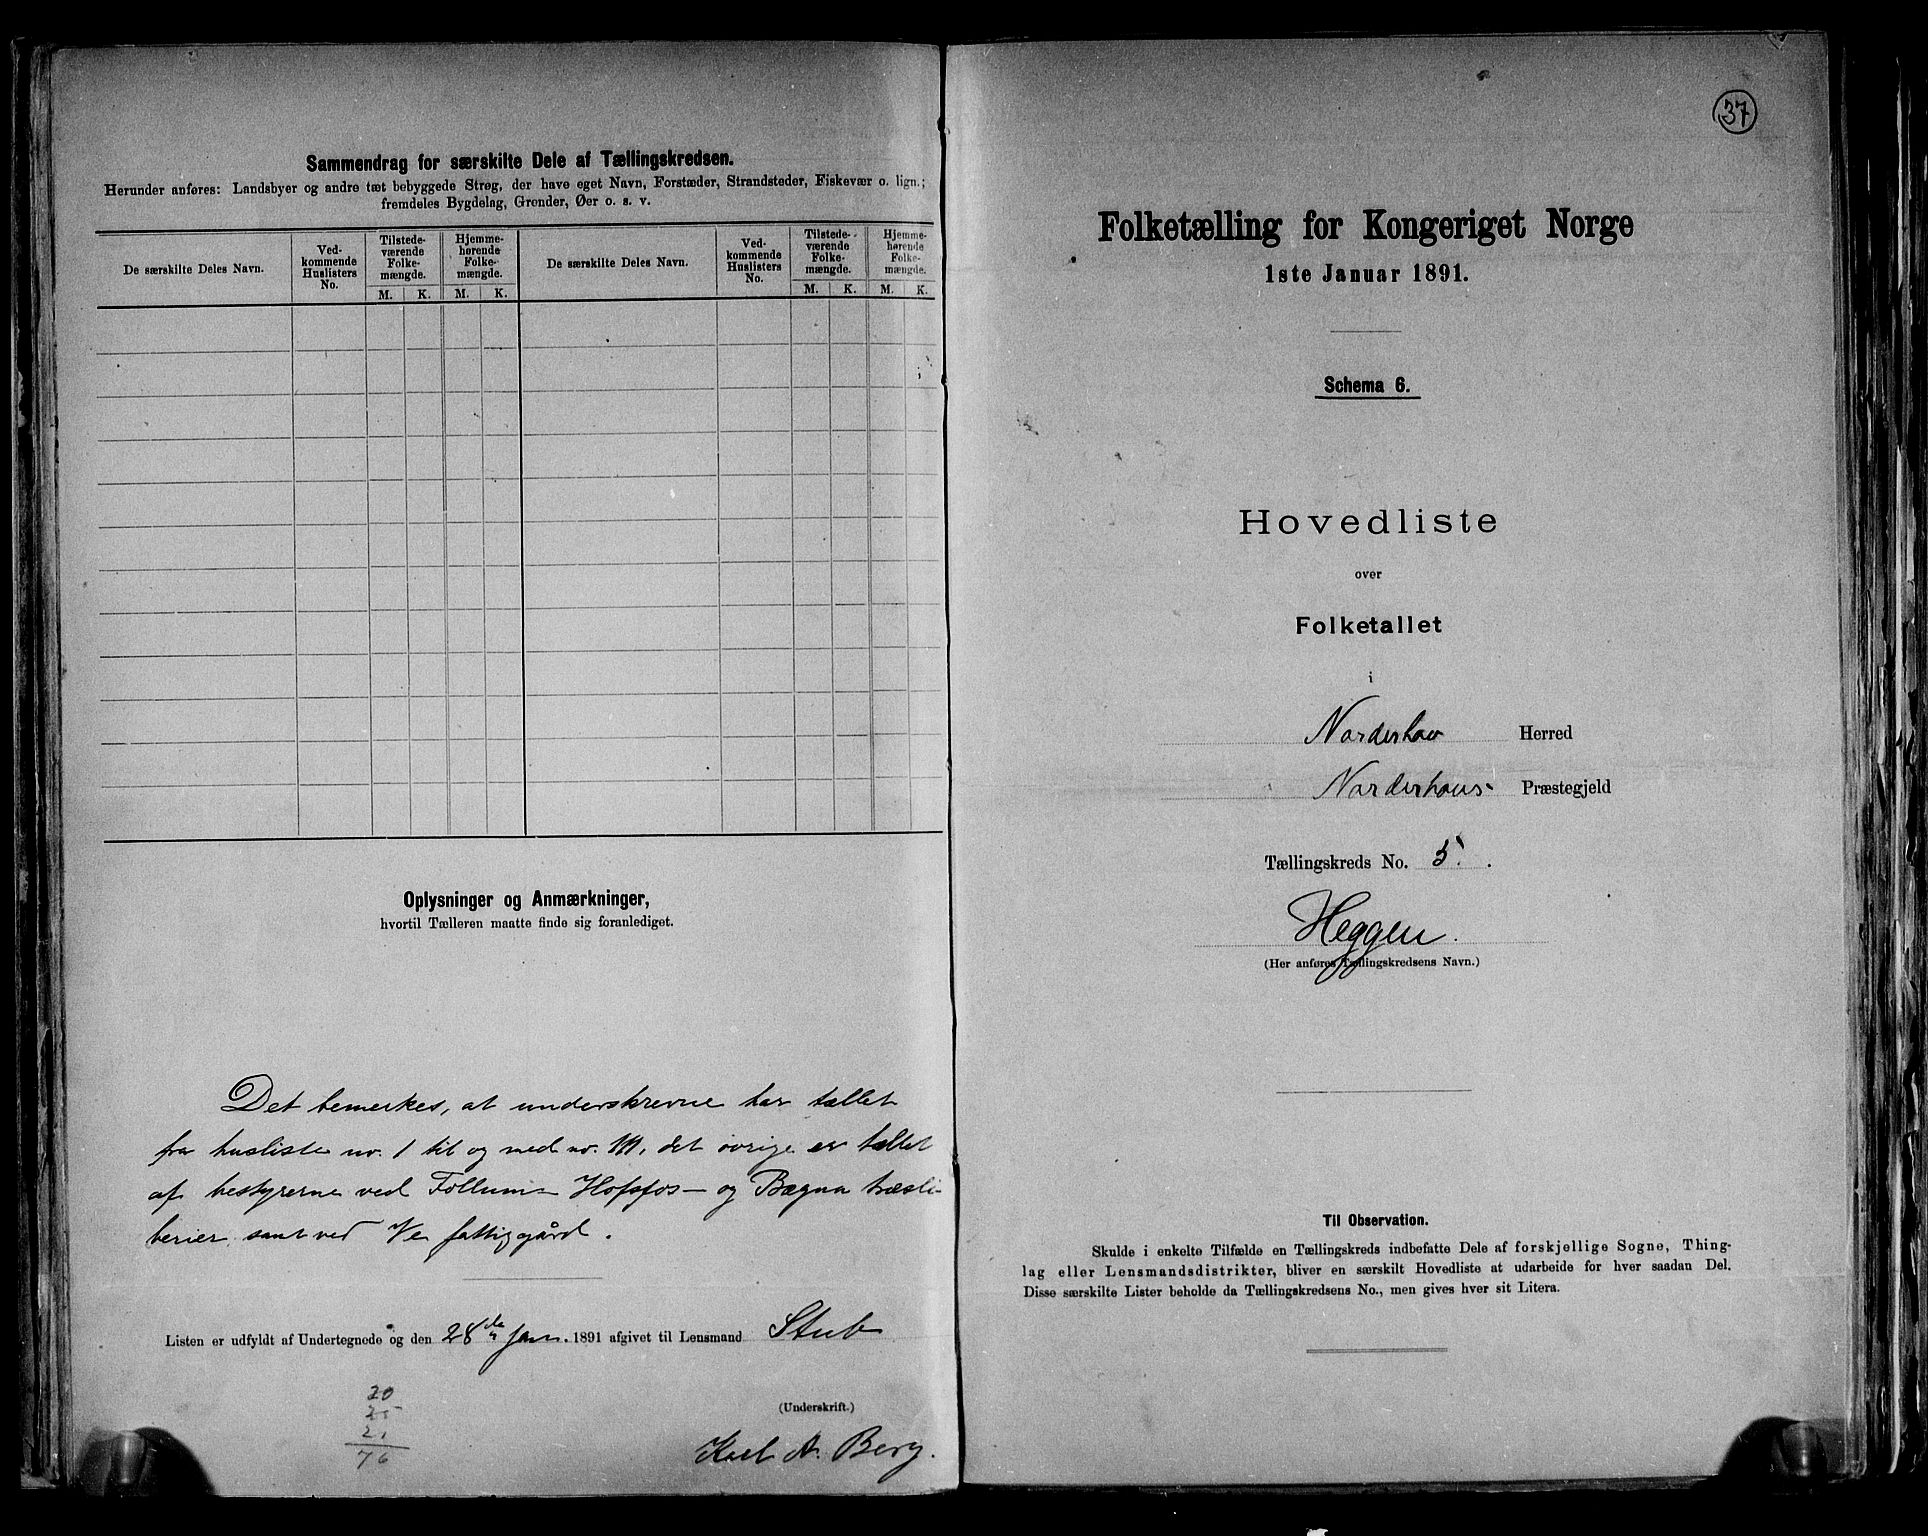 Sammendrag for særskilte Dele af Tællingskredsen.
Herunder anføres: Landsbyer og andre tæt bebyggede Strøg, der have eget Navn, Forstæder, Strandsteder, Fiskevær o. lign.;
fremdeles Bygdelag, Grender, Øer o. s. v.
De særskilte Deles Navn.
Ved-
kommende
Huslisters
No.
Tilstede-
værende
Folke-
mængde.
Hjemme-
hørende
Folke-
mængde.
De særskilte Deles Navn.
Ved-
kommende
Huslisters
No.
Tilstede-
værende
Folke-
mængde.
Hjemme-
hørende
Folke-
mængde.
M. K. M. K. M. K. M. K.
Oplysninger og Anmærkninger,
hvortil Tælleren maatte finde sig foranlediget.
Det bemerkes, at underskrevne har tællet
fra husliste no. 1 til og med no. 111, det øvrige er tællet
af bestyrerne ved Follum- Hofsfos- og Bægna træsli-
berier samt ved Ve fattiggård.
Listen er udfyldt af Undertegnede og den 28de Jan. 1891 afgivet til Lensmand Stub
(Underskrift.)
Karl A. Berg.
20
25
21
76
37
Folketælling for Kongeriget Norge
1ste Januar 1891.
Schema 6.
Hovedliste
over
Folketallet
i
Norderhov Herred
Norderhovs Præstegjeld
Tællingskreds No. 5.
Heggen.
(Her anføres Tællingskredsens Navn.)
Til Observation.
Skulde i enkelte Tilfælde en Tællingskreds indbefatte Dele af forskjellige Sogne, Thing-
lag eller Lensmandsdistrikter, bliver en særskilt Hovedliste at udarbeide for hver saadan Del.
Disse særskilte Lister beholde da Tællingskredsens No., men gives hver sit Litera.